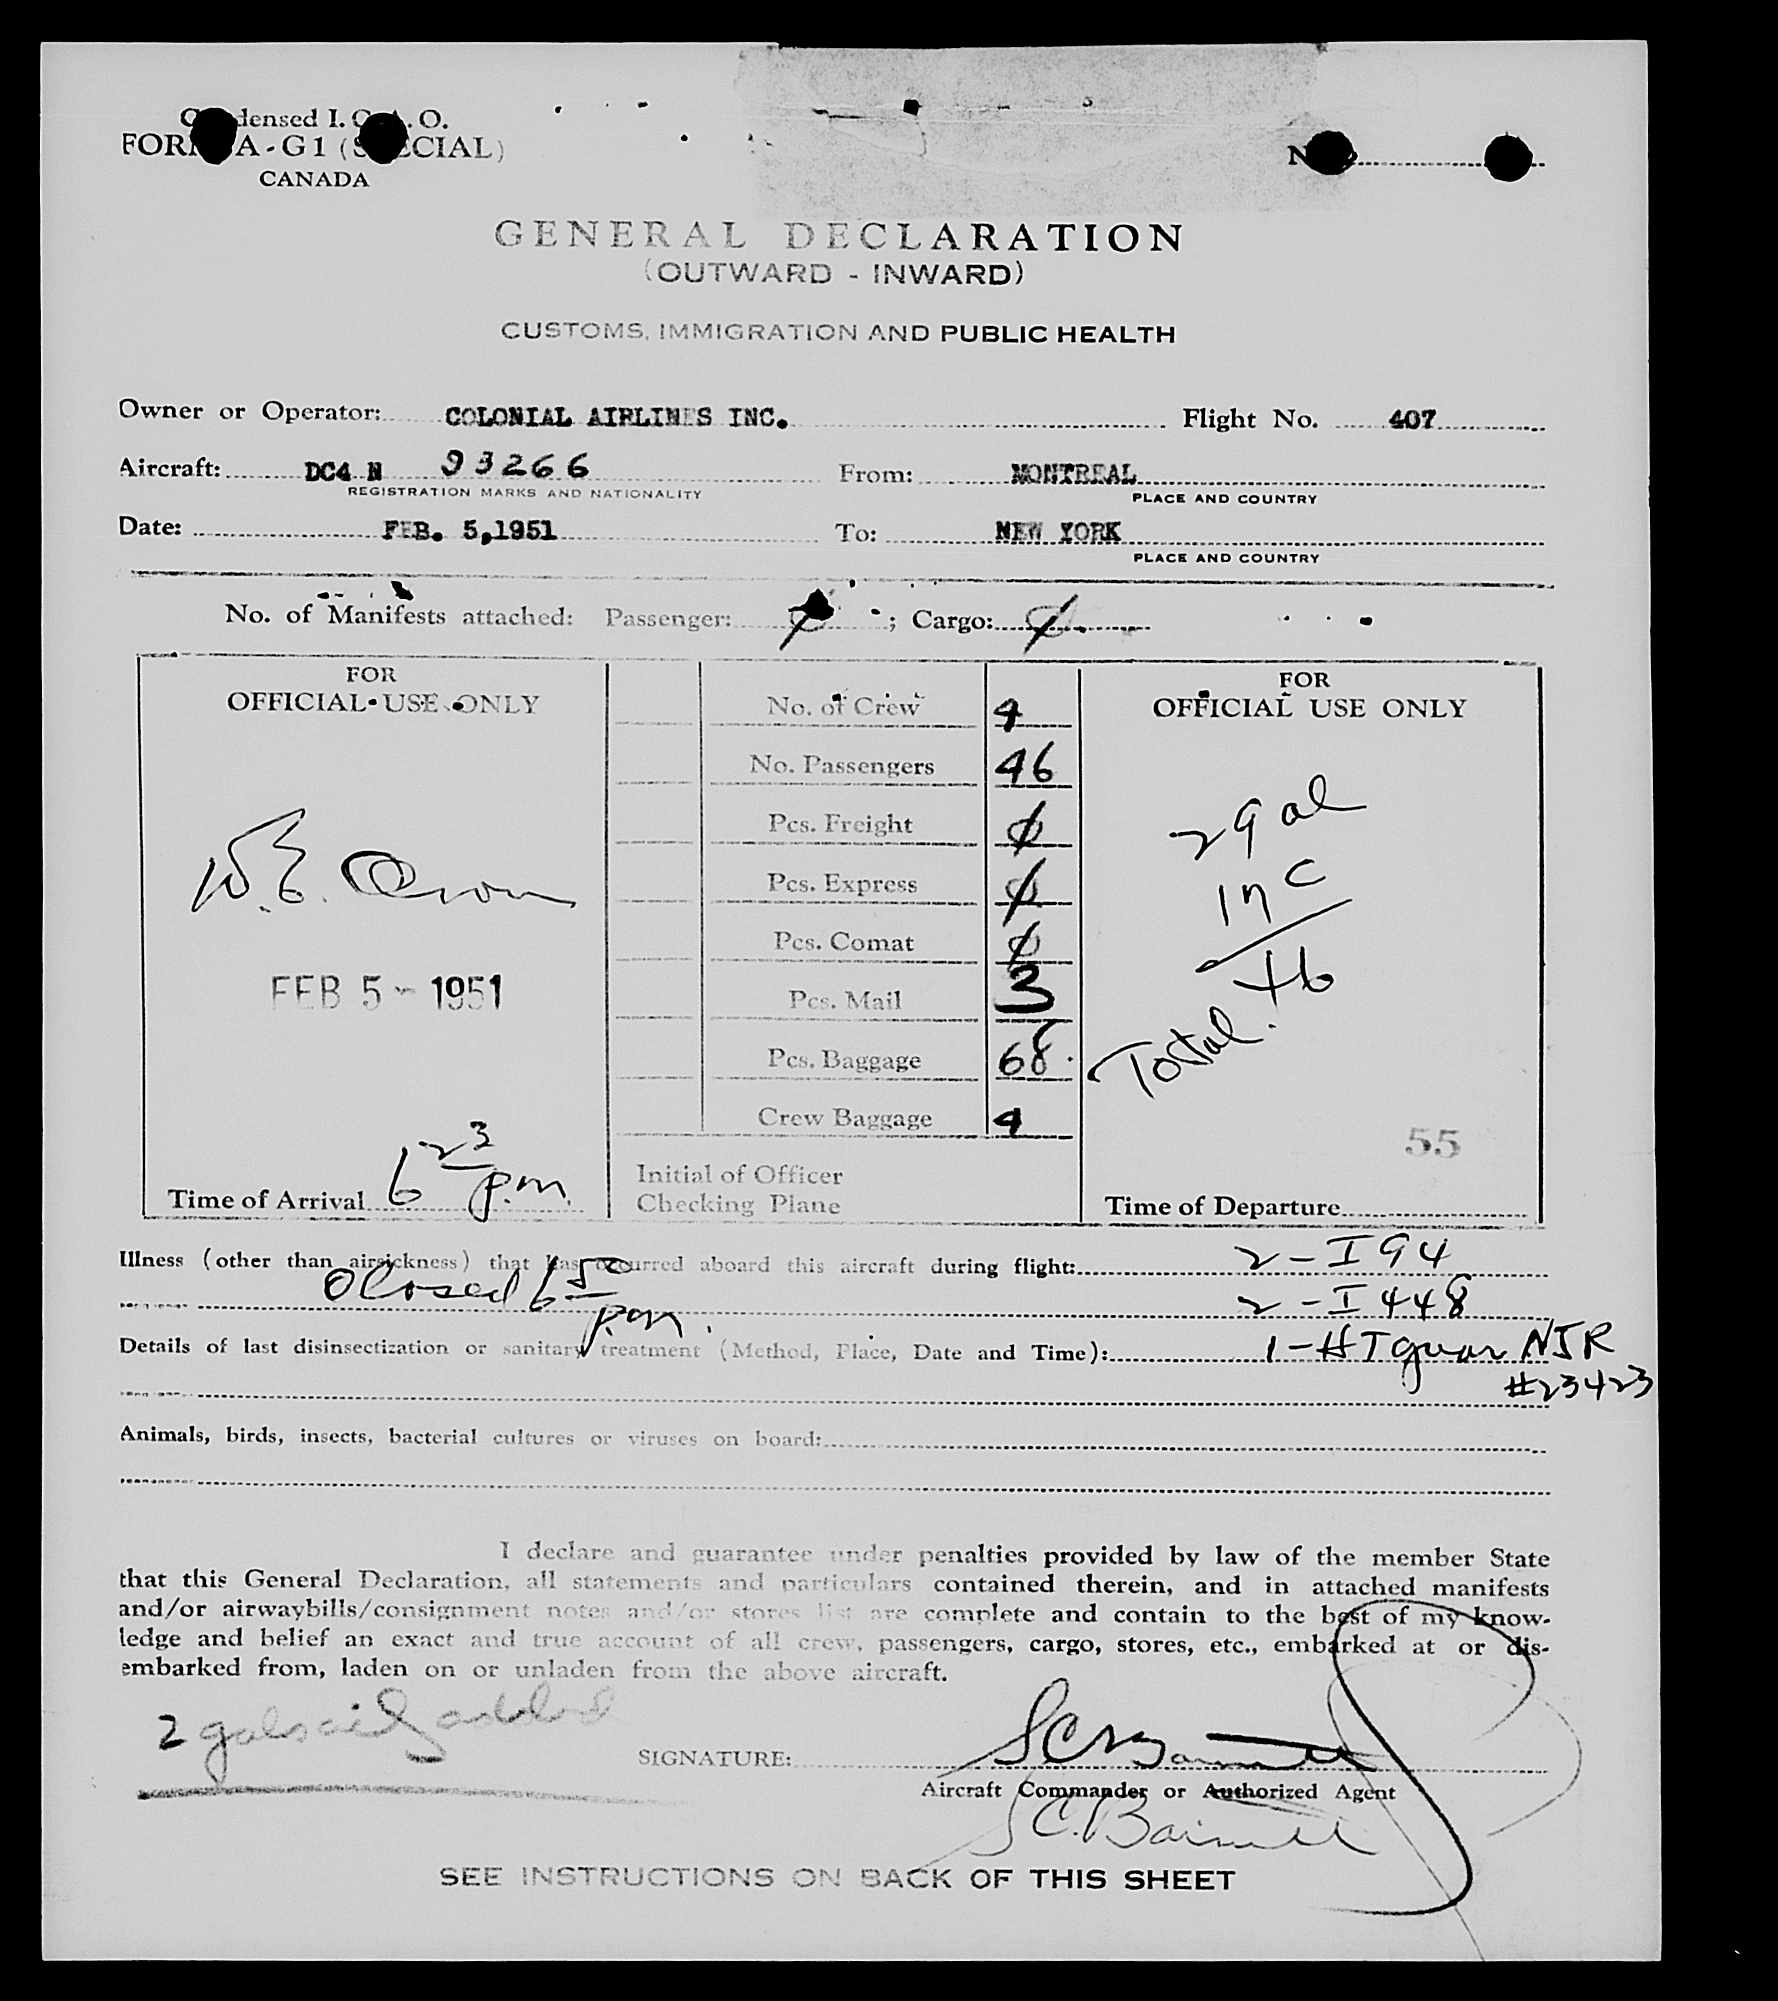 Condensed I.C.A.O.
FORM A-G1 (SPECIAL)
CANADA
No.
GENERAL DECLARATION
(OUTWARD - INWARD)
CUSTOMS, IMMIGRATION AND PUBLIC HEALTH
Owner or Operator: COLONIAL AIRLINES INC. Flight No. 407
Aircraft: DC4 N 93266 From: MONTREAL
REGISTRATION MARKS AND NATIONALITY PLACE AND COUNTRY
Date: FEB. 5,1951 To: NEW YORK
PLACE AND COUNTRY
No. of Manifests attached: Passenger: Ø ; Cargo: Ø
FOR
OFFICIAL USE ONLY
W.E.
FEB 5 - 1951
Time of Arrival 6 23 p.m.
No. of Crew 4
No. Passengers 46
Pcs. Freight Ø
Pcs. Express Ø
Pcs. Comat Ø
Pcs. Mail 3
Pcs. Baggage 68.
Crew Baggage 4
Initial of Officer
Checking Plane
FOR
OFFICIAL USE ONLY
29 al
17 c
Total. 46
55
Time of Departure
Illness (other than airsickness) that has occurred aboard this aircraft during flight: 2 - I 94
Closed 6 50 p.m. 2 - I 448
Details of last disinsectization or sanitary treatment (Method, Place, Date and Time): 1 - HT guar NJR
#23423
Animals, birds, insects, bacterial cultures or viruses on board:
I declare and guarantee under penalties provided by law of the member State
that this General Declaration, all statements and particulars contained therein, and in attached manifests
and/or airwaybills/consignment notes and/or stores list are complete and contain to the best of my know-
ledge and belief an exact and true account of all crew, passengers, cargo, stores, etc., embarked at or dis-
embarked from, laden on or unladen from the above aircraft.
2 gals oil added
SIGNATURE:
Aircraft Commander or Authorized Agent
SEE INSTRUCTIONS ON BACK OF THIS SHEET